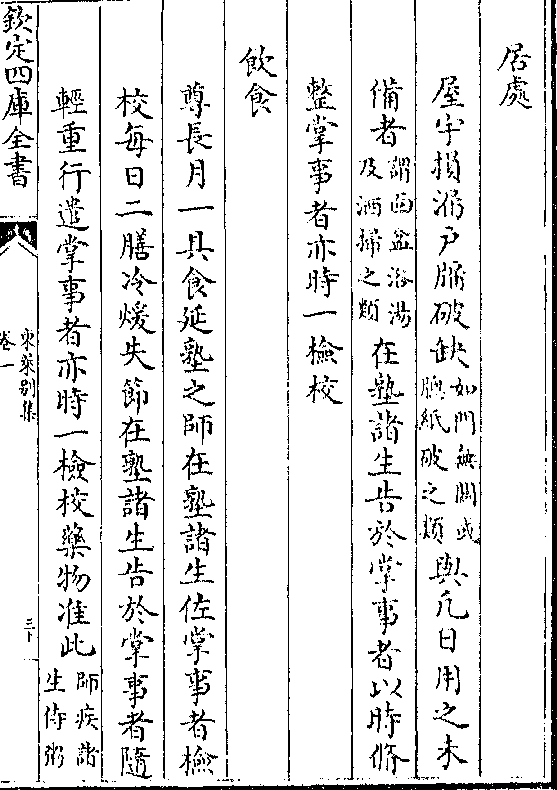 居處
屋宇損漏户牖破缺如門無關或牖紙破之類與凡日用之未
備者謂面盆浴湯及洒掃之類在塾諸生告於掌事者以時修
整掌事者亦時一檢校
飲食
尊長月一具食延塾之師在塾諸生佐掌事者檢
校每日二膳冷煖失節在塾諸生告於掌事者隨
輕重行遣掌事者亦時一檢校藥物准此師疾諸生侍粥
欽定四庫全書
東萊别集
卷一
三十